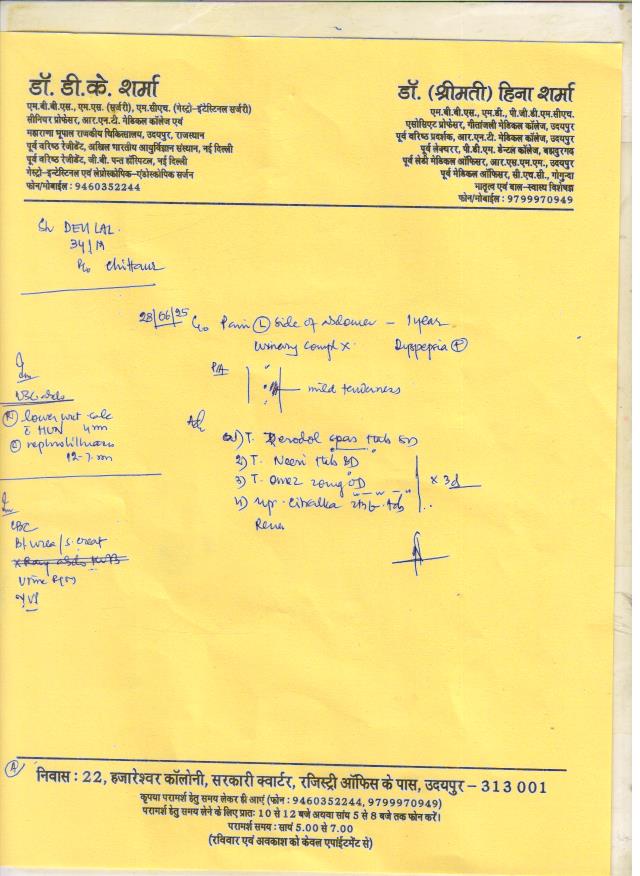 डॉ. डी.के. शर्मा
एम.बी.बी.एस., एम.एस. (सर्जरी), एम.सीएच. (गेस्ट्रो-इंटेस्टिनल सर्जरी)
सीनियर प्रोफेसर, आर.एन.टी. मेडिकल कॉलेज एवं
महाराणा भूपाल राजकीय चिकित्सालय, उदयपुर, राजस्थान
पूर्व वरिष्ठ रेजीडेंट, अखिल भारतीय आयुर्विज्ञान संस्थान, नई दिल्ली
पूर्व वरिष्ठ रेजीडेंट, जी.बी. पन्त हॉस्पिटल, नई दिल्ली
गेस्ट्रो-इन्टेस्टिनल एवं लेप्रोस्कोपिक-एंडोस्कोपिक सर्जन
फोन/मोबाईल : 9460352244
डॉ. (श्रीमती) हिना शर्मा
एम.बी.बी.एस., एम.डी., पी.जी.डी.एम.सीएच.
एसोसिएट प्रोफेसर, गीतांजली मेडिकल कॉलेज, उदयपुर
पूर्व वरिष्ठ प्रदर्शक, आर.एन.टी. मेडिकल कॉलेज, उदयपुर
पूर्व लेक्चरर, पी.डी.एम. डेन्टल कॉलेज, बहादुरगढ़
पूर्व लेडी मेडिकल ऑफिसर, आर.एस.एम.एम., उदयपुर
पूर्व मेडिकल ऑफिसर, सी.एच.सी., गोगुन्दा
मातृत्व एवं बाल-स्वास्थ्य विशेषज्ञ
फोन/मोबाईल : 9799970949
Sh DEU LAL
34/M
R/o Chittaur
28/06/25 C/o Pain (L) side of abdomen - 1 year
Urinary compl x Dyspepsia (+)
P/A mild tenderness
USG abdo
lower uret calc
c HUN 4 mm
nephrolithiasis
Adv
1) T. Zerodol spas 1tab BD
2) T. Neeri 1tab BD
3) T. Omez 20mg OD x 3d
4) Syr. Citralka 2tsf
CBC
Bl urea / S. creat
X Ray abdo KUB
Urine
IVP
(A)
निवास : 22, हजारेश्वर कॉलोनी, सरकारी क्वार्टर, रजिस्ट्री ऑफिस के पास, उदयपुर - 313 001
कृपया परामर्श हेतु समय लेकर ही आएं (फोन : 9460352244, 9799970949)
परामर्श हेतु समय लेने के लिए प्रातः 10 से 12 बजे अथवा सांय 5 से 8 बजे तक फोन करें।
परामर्श समय : सायं 5.00 से 7.00
(रविवार एवं अवकाश को केवल एपाईंटमेंट से)